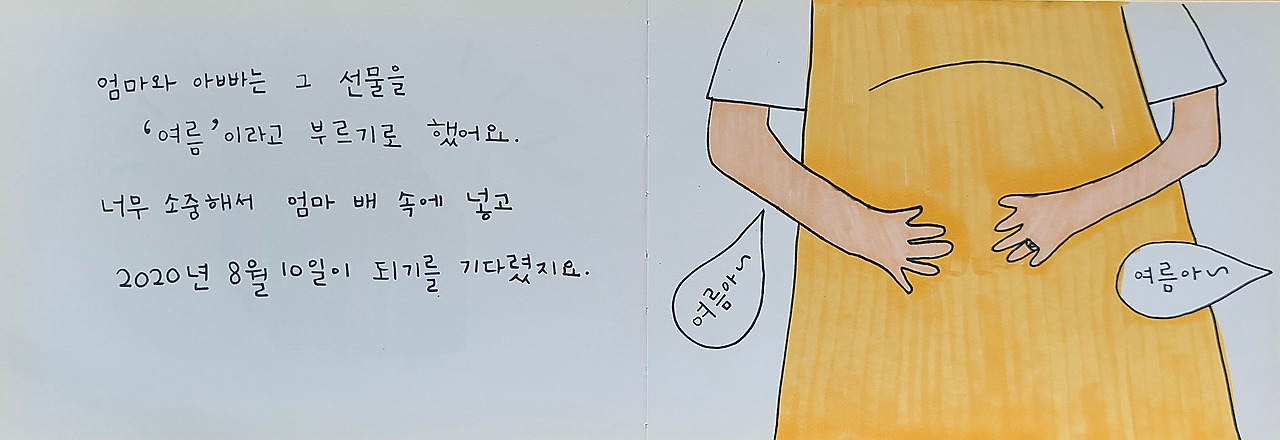 엄마와 아빠는 그 선물을
'여름'이라고 부르기로 했어요.
너무 소중해서 엄마 배 속에 넣고
2020년 8월 10일이 되기를 기다렸지요.
여름아~
여름아~